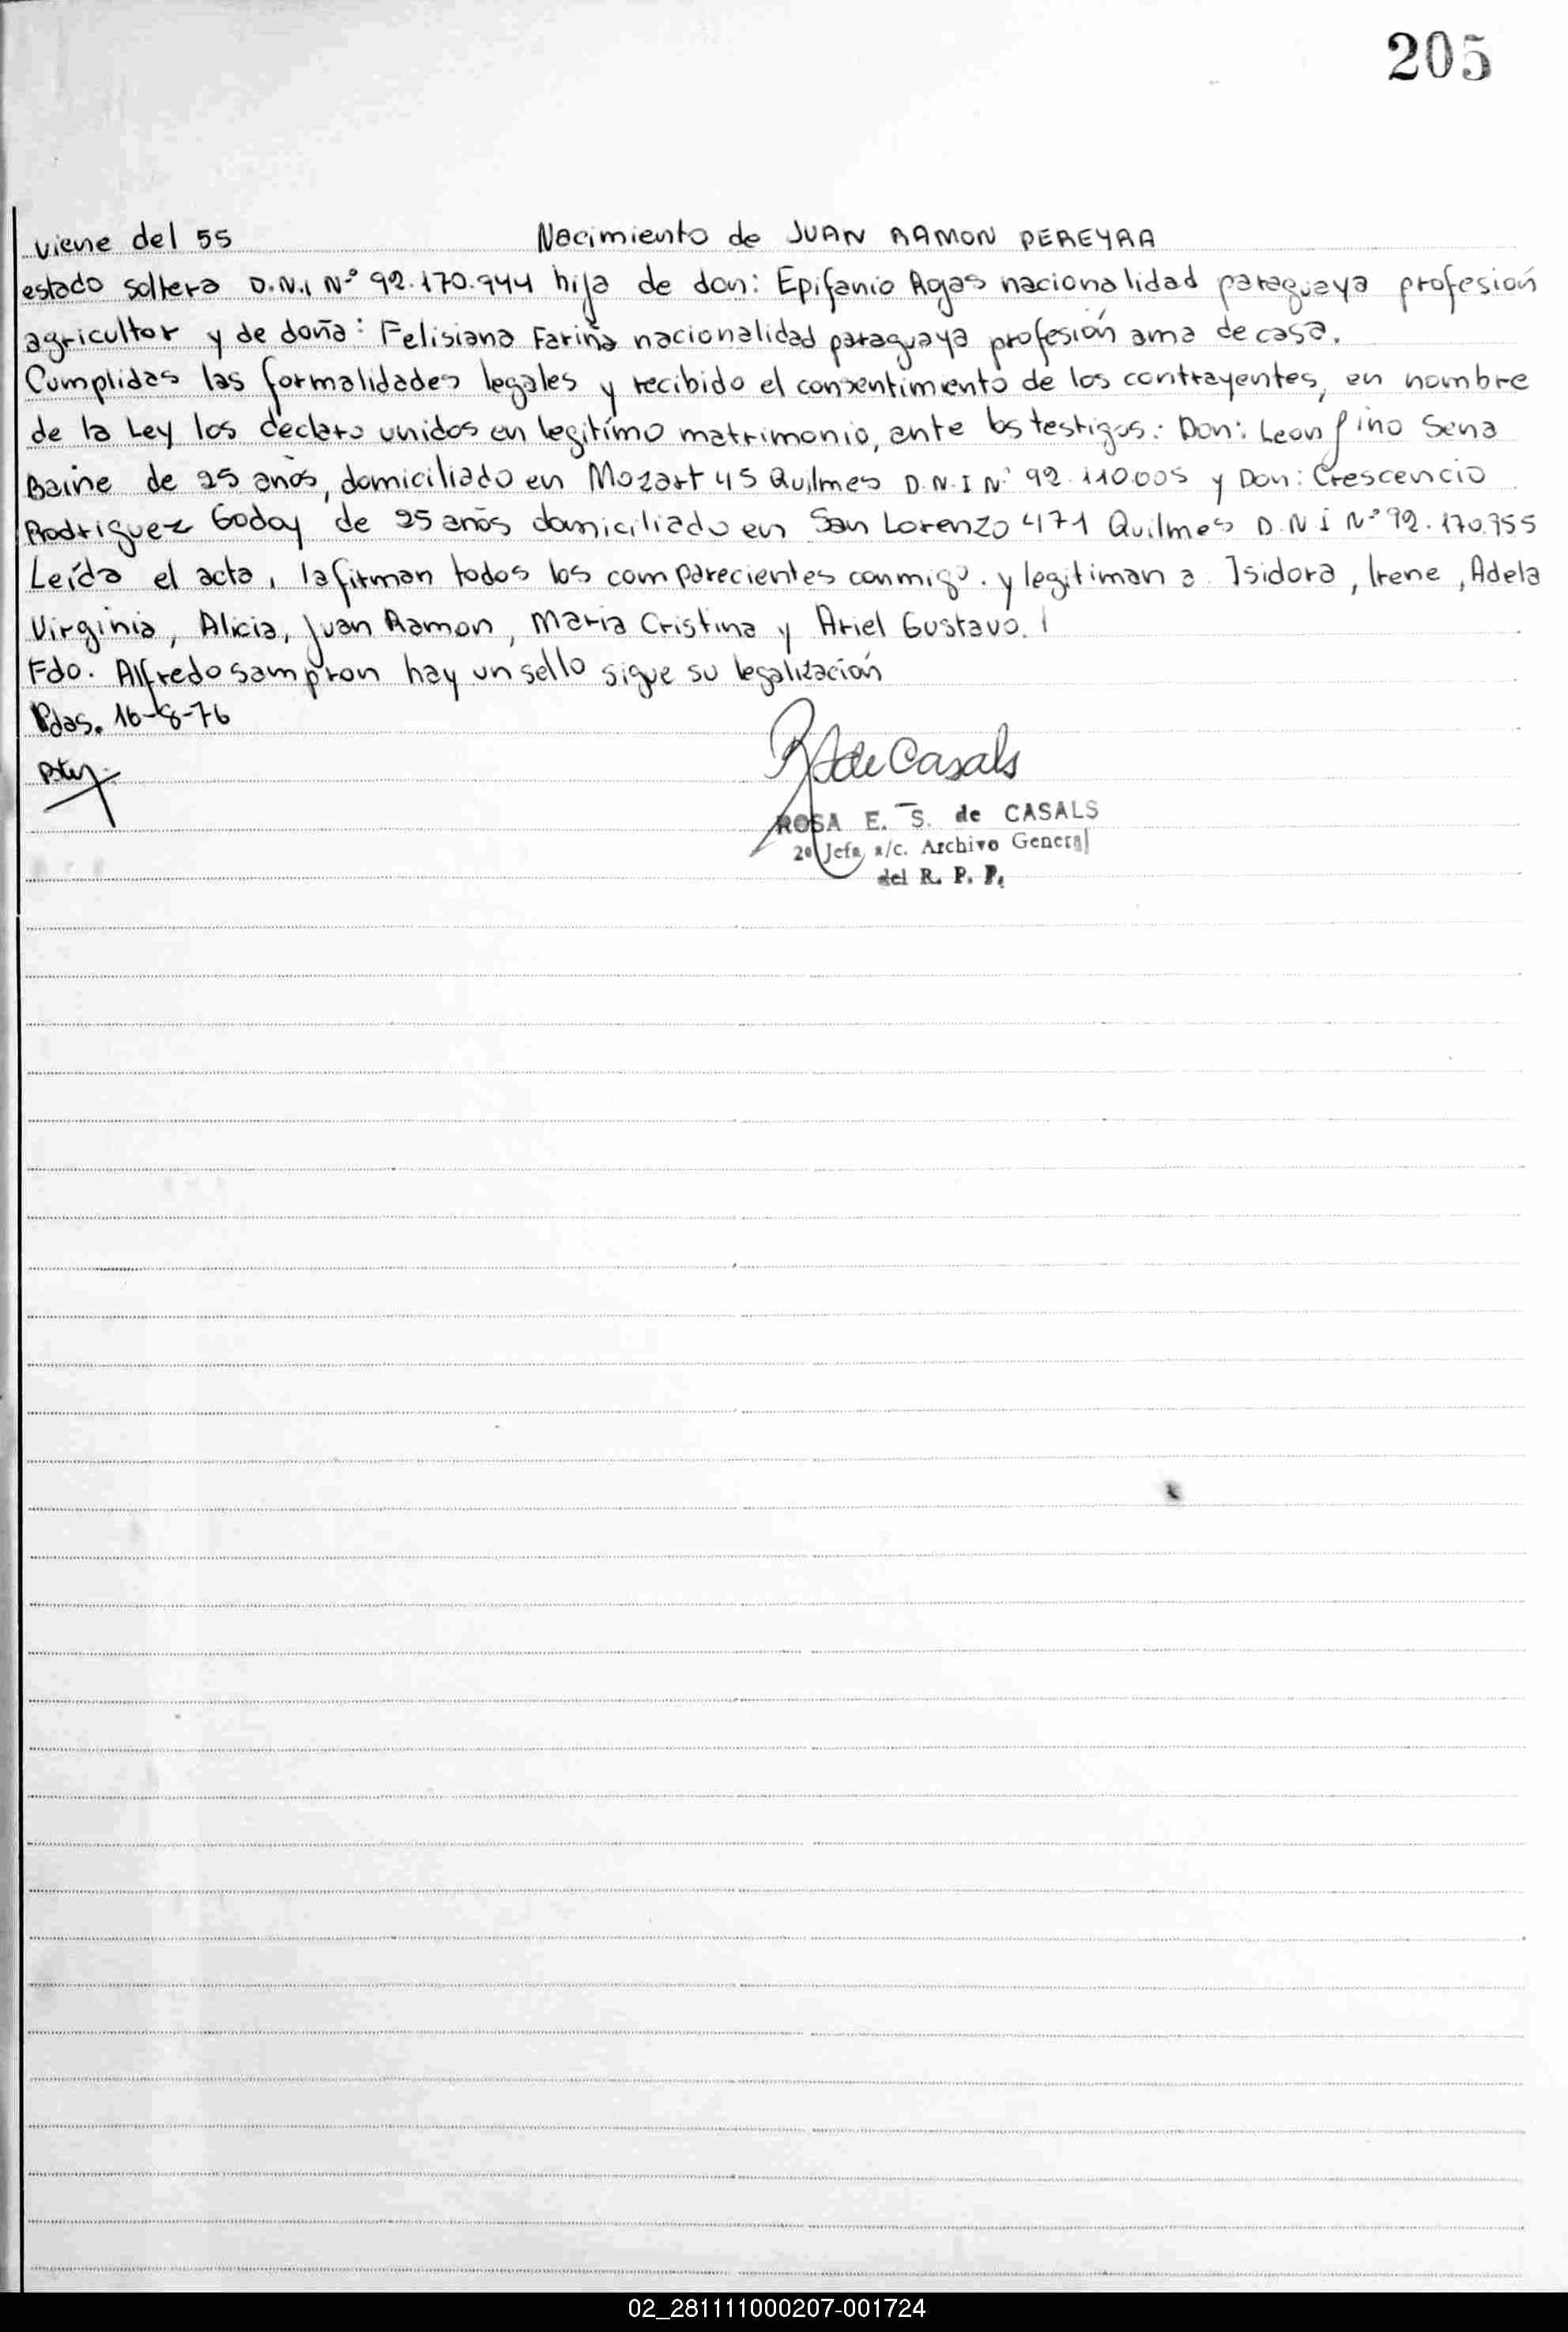 205
viene del 55 Nacimiento de JUAN RAMON PEREYRA
estado soltera D.N.I Nº 92.170.944 hija de don: Epifanio Rojas nacionalidad paraguaya profesión
agricultor y de doña: Felisiana Fariña nacionalidad paraguaya profesión ama de casa.
Cumplidas las formalidades legales y recibido el consentimiento de los contrayentes, en nombre
de la Ley los declaro unidos en legitimo matrimonio, ante los testigos: Don: Leonfino Sena
Baine de 25 años, domiciliado en Mozart 45 Quilmes D.N.I Nº 92.110.005 y Don: Crescencio
Rodriguez Godoy de 25 años domiciliado en San Lorenzo 471 Quilmes D.N I Nº 92.170.955
Leída el acta, la firman todos los comparecientes conmigo. y legitiman a Isidora, Irene, Adela
Virginia, Alicia, Juan Ramon, Maria Cristina y Ariel Gustavo.
Fdo. Alfredo Sampron hay un sello sigue su legalización
Pdas. 16-8-76
de Casals
ROSA E. S. de CASALS
2º Jefa a/c. Archivo General
del R. P. P.
02_281111000207-001724